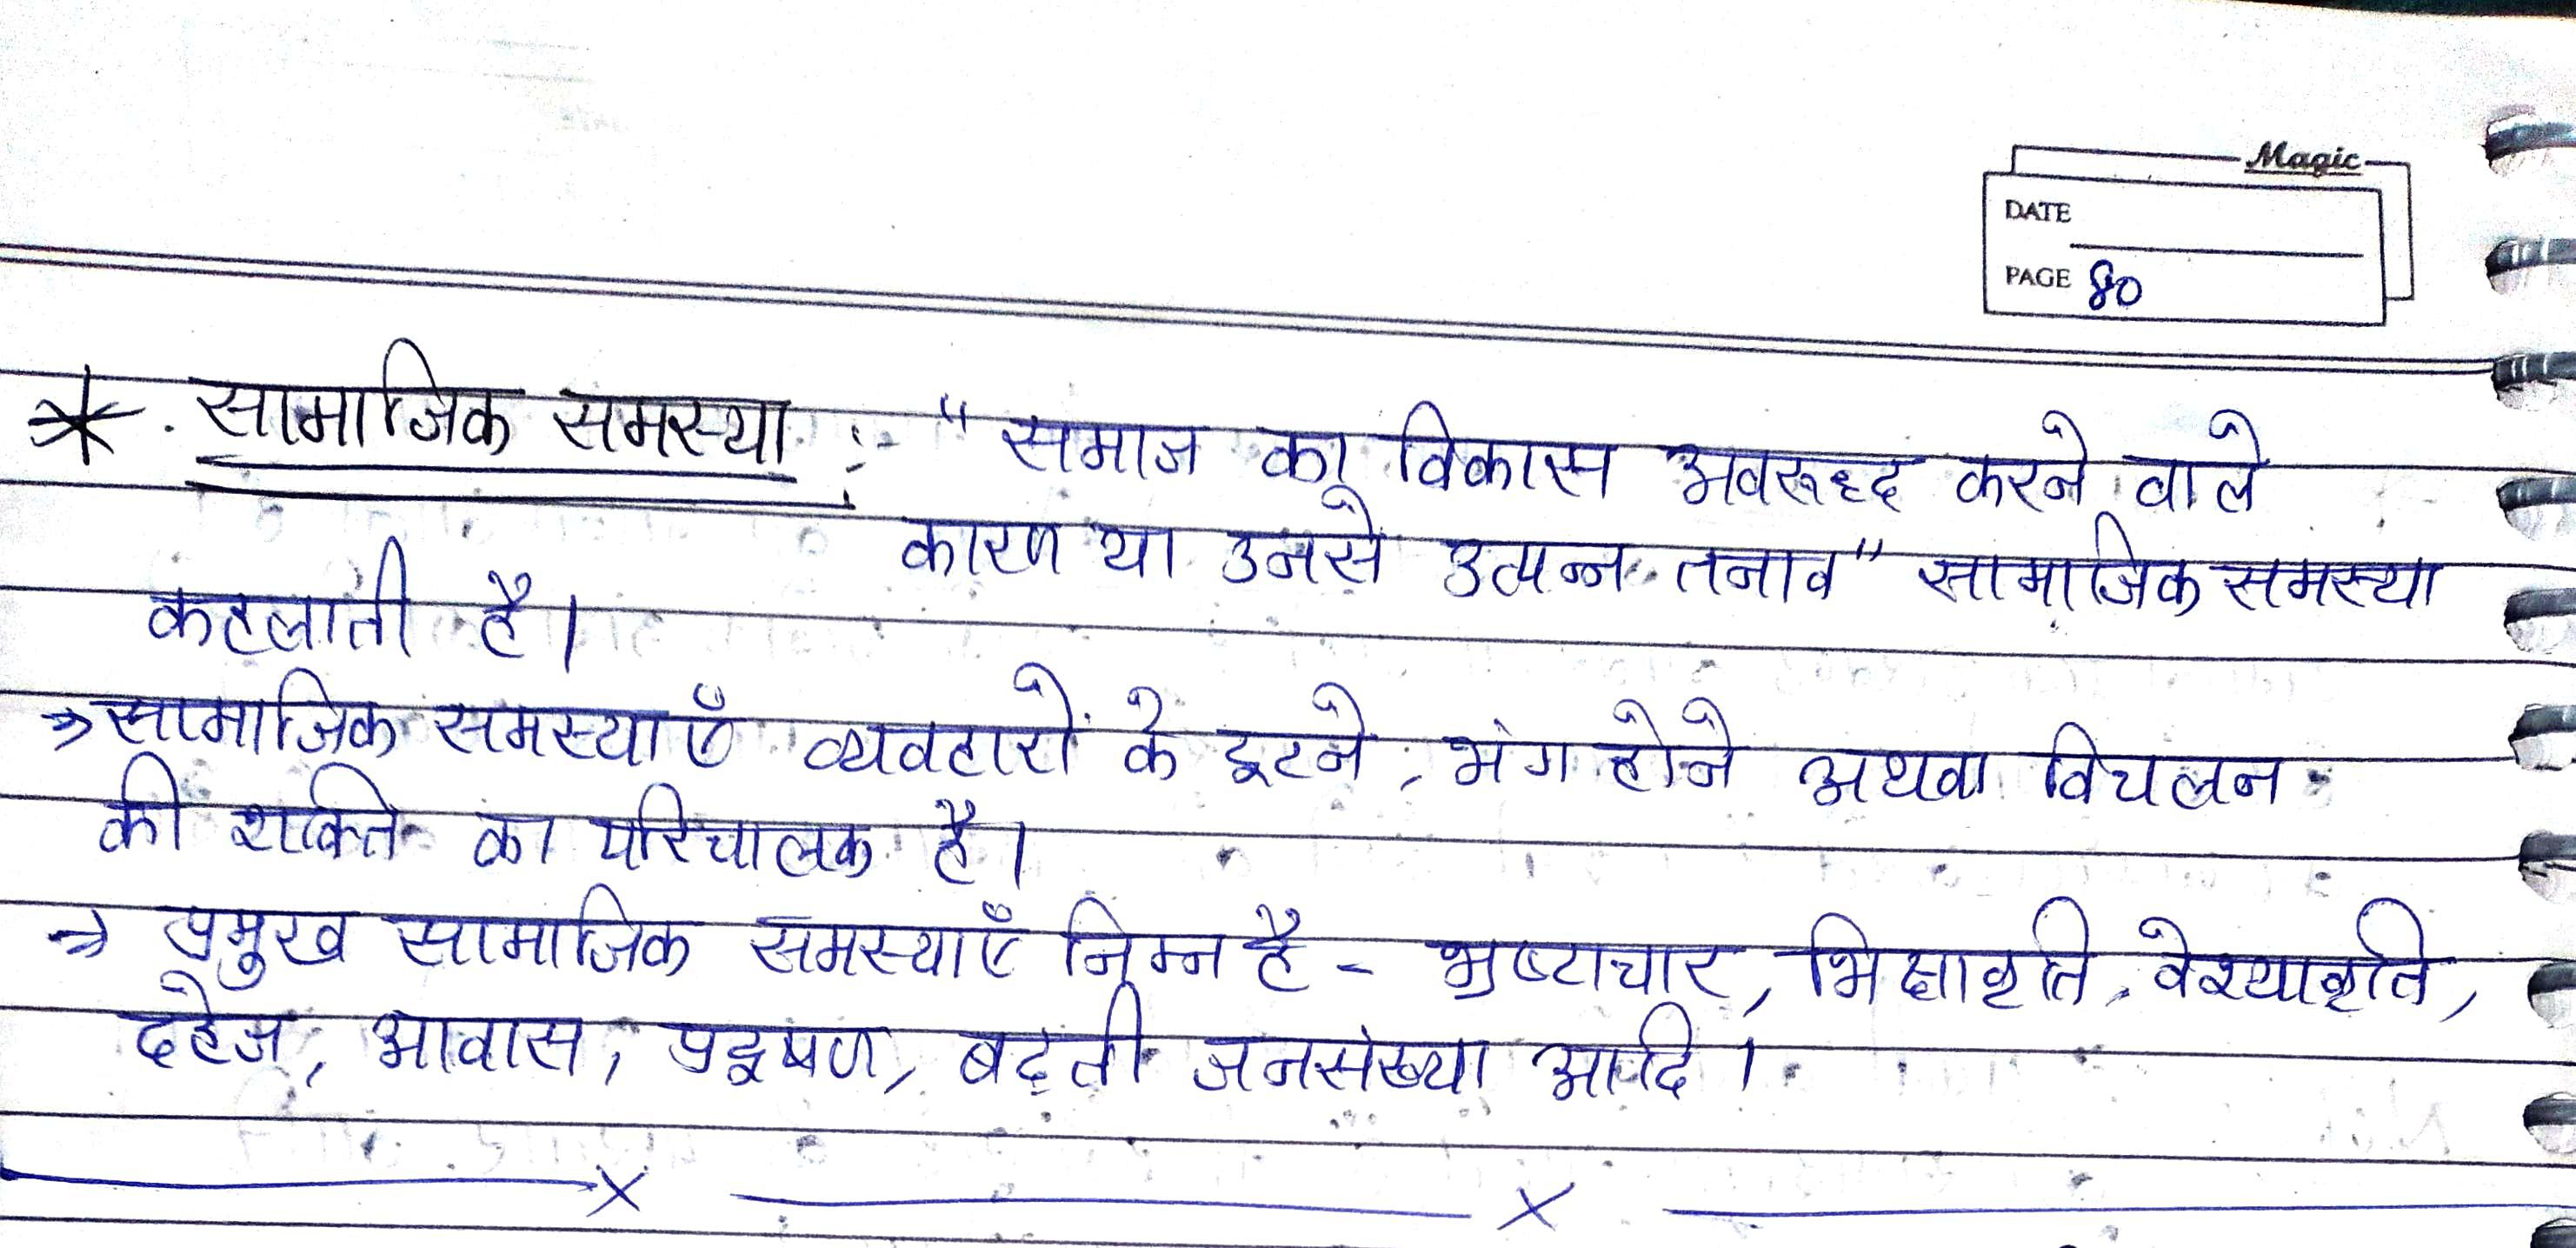 Magic
DATE
PAGE 80
* . सामाजिक समस्या :- "समाज का विकास अवरूद्ध करने वाले
कारण या उनसे उत्पन्न तनाव" सामाजिक समस्या
कहलाती है।
→ सामाजिक समस्याएँ व्यवहारों के टूटने, भंग होने अथवा विचलन
की शक्ति का परिचालक है।
→ प्रमुख सामाजिक समस्याएँ निम्न है - भ्रष्टाचार, भिक्षावृति, वेश्यावृति,
दहेज, आवास, प्रदूषण, बढ़ती जनसंख्या आदि।